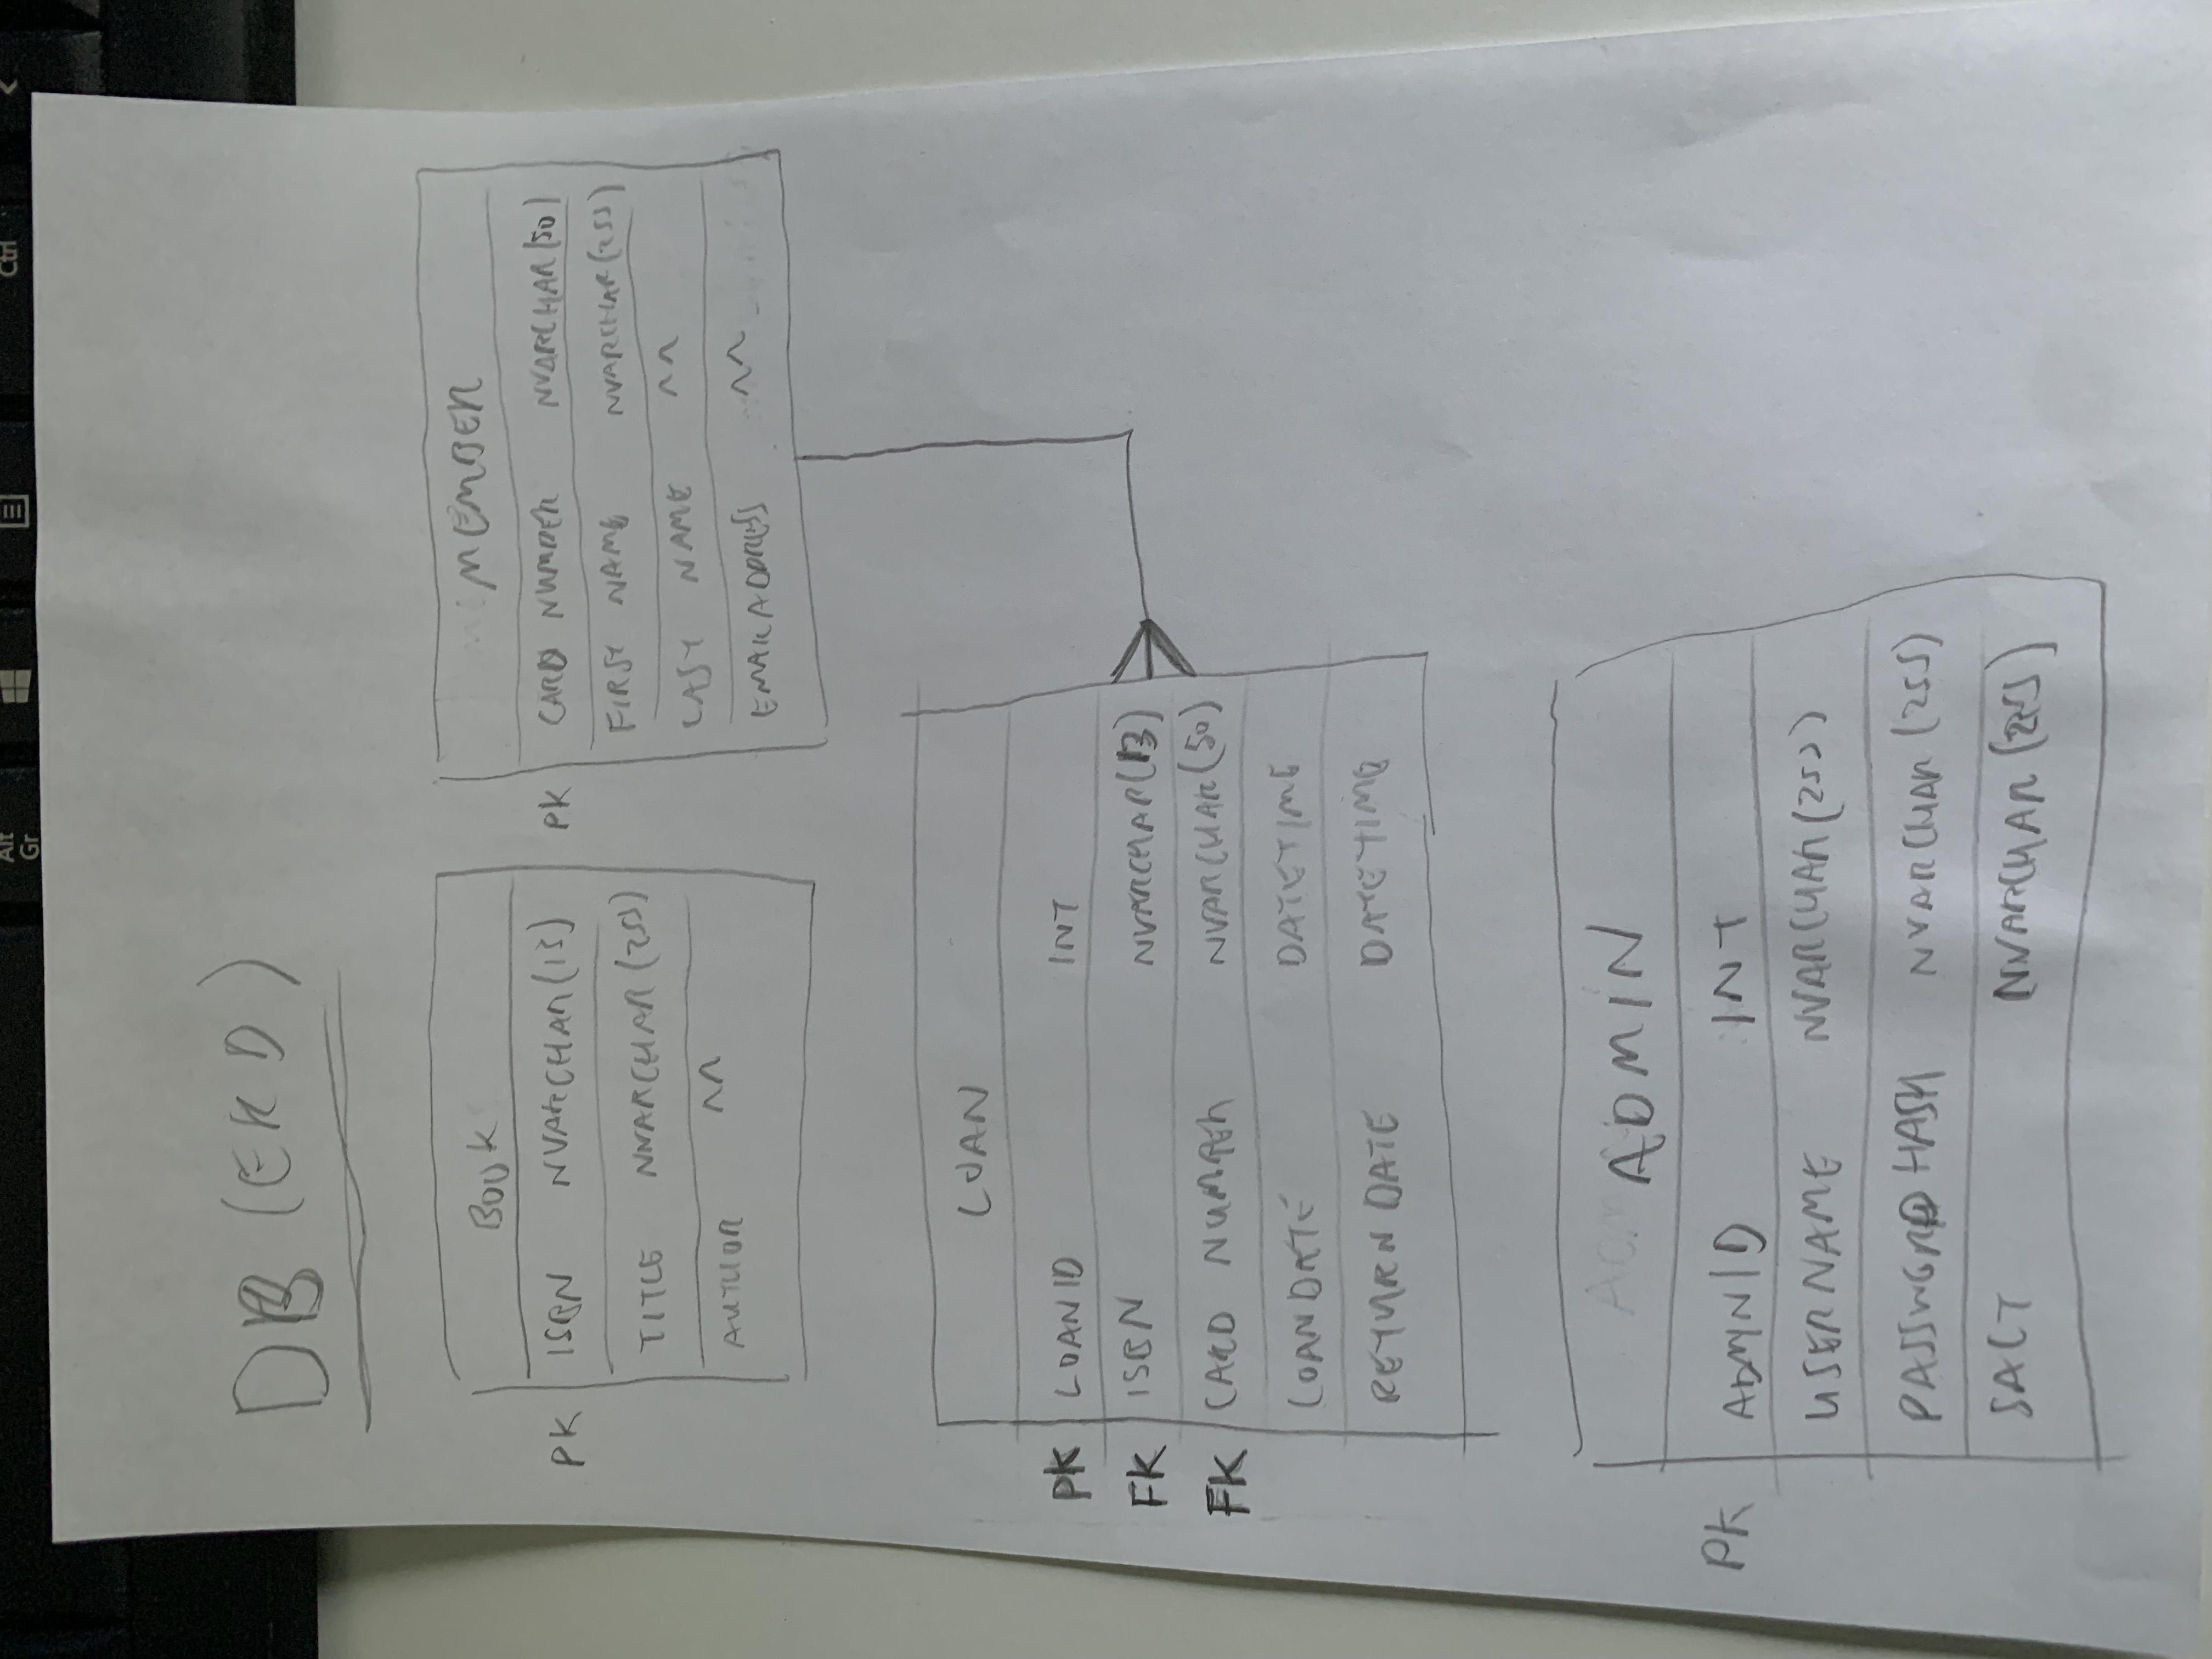 Alt
Gr
Ctrl
<
DB (ERD)
BOOK
PK ISBN NVARCHAR(13)
TITLE NVARCHAR(255)
AUTHOR ^^
MEMBER
PK CARD NUMBER NVARCHAR(50)
FIRST NAME NVARCHAR(255)
LAST NAME ^^
EMAIL ADDRESS ^^
LOAN
PK LOANID INT
FK ISBN NVARCHAR(13)
FK CARD NUMBER NVARCHAR(50)
LOANDATE DATETIME
RETURN DATE DATETIME
ADMIN
PK ADMINID INT
USERNAME NVARCHAR(255)
PASSWORD HASH NVARCHAR(255)
SALT NVARCHAR(255)